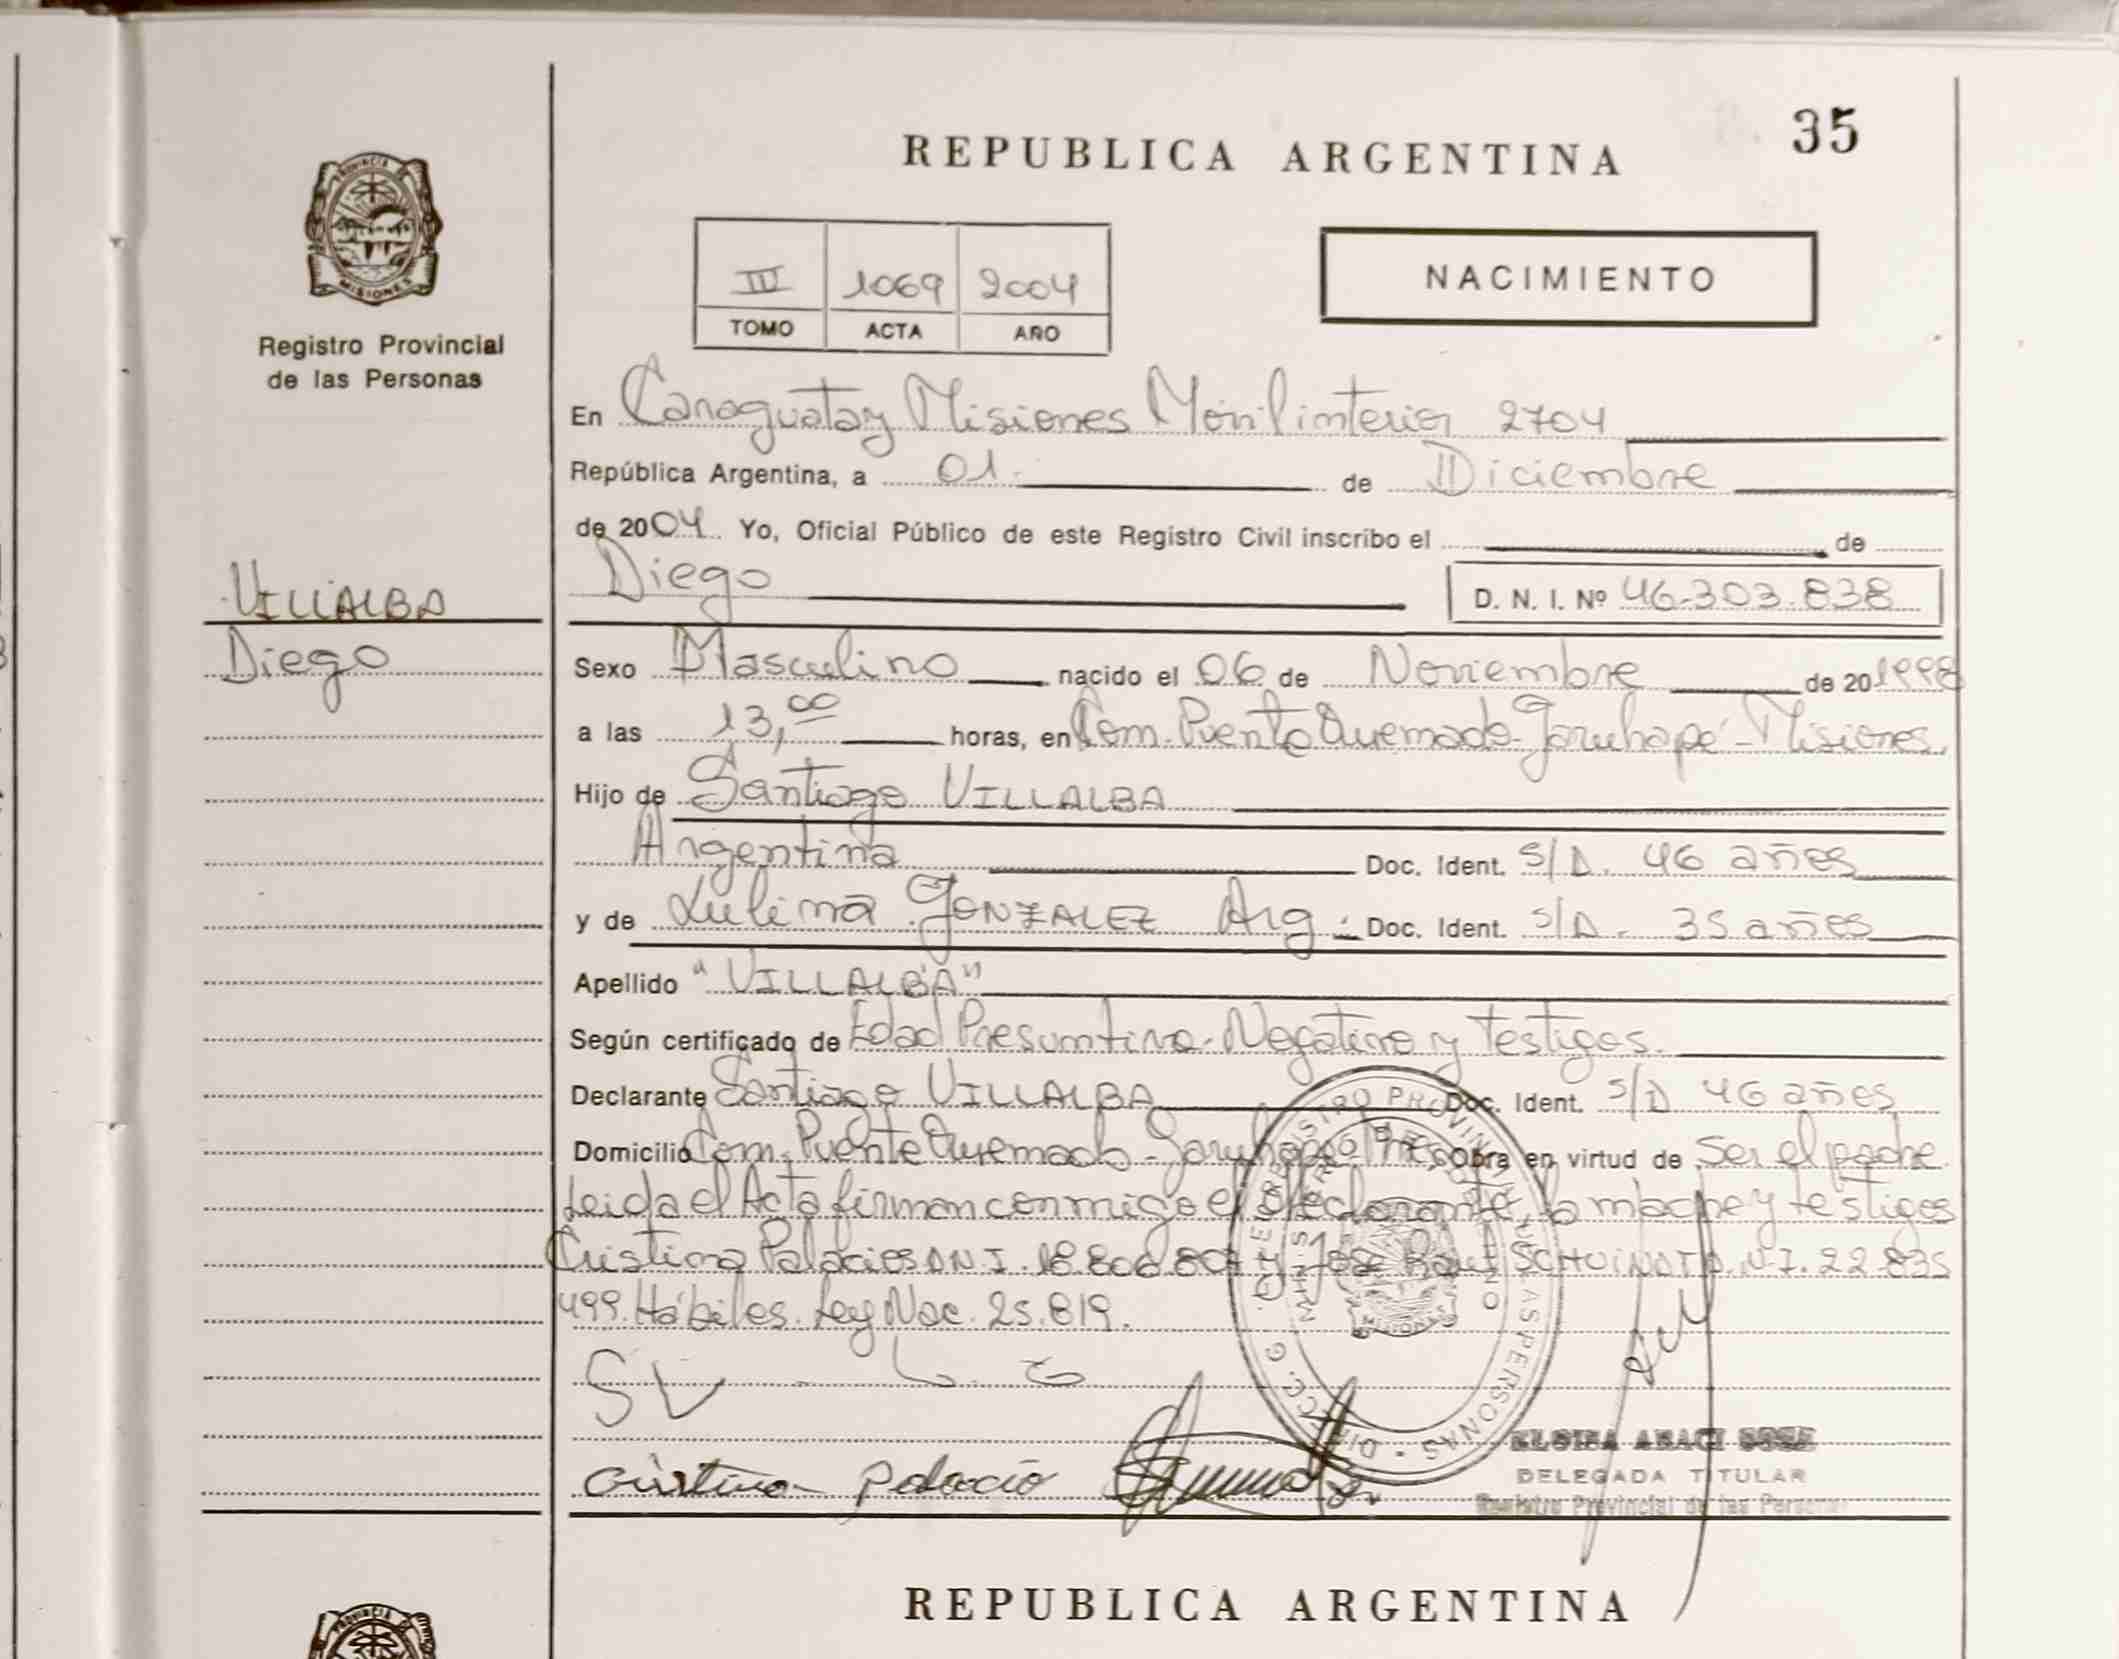 35
REPUBLICA ARGENTINA
PROVINCIA DE
MISIONES
Registro Provincial
de las Personas
III 1069 2004
TOMO ACTA AÑO
NACIMIENTO
En Caraguatay Misiones Móvil interior 2704
República Argentina, a 01 de Diciembre
de 2004 Yo, Oficial Público de este Registro Civil inscribo el de
Diego D. N. I. Nº 46.303.838
VILLALBA
Diego
Sexo Masculino nacido el 06 de Noviembre de 20 1998
a las 13,00 horas, en Com. Puente Quemado-Garuhapé-Misiones
Hijo de Santiago VILLALBA
Argentina Doc. Ident. S/D. 46 años
y de GONZALEZ Arg. Doc. Ident. S/D. 35 años
Apellido "VILLALBA"
Según certificado de Edad Presuntiva-Negativo y Testigos.
Declarante Santiago VILLALBA Doc. Ident. S/D 46 años
Domicilio Com. Puente Quemado-Garuhapé Obra en virtud de ser el padre
Leida el Acta firman conmigo el declarante, la madre y testigos
Cristina Palacios DNI. 18.806. y José Raul D.N.I. 22.835
499. Hábiles. Ley Nac. 25.819.
SV L G
Cristina Palacio
DELEGADA TITULAR
Registro Provincial de las Personas
REPUBLICA ARGENTINA
PROVINCIA DE